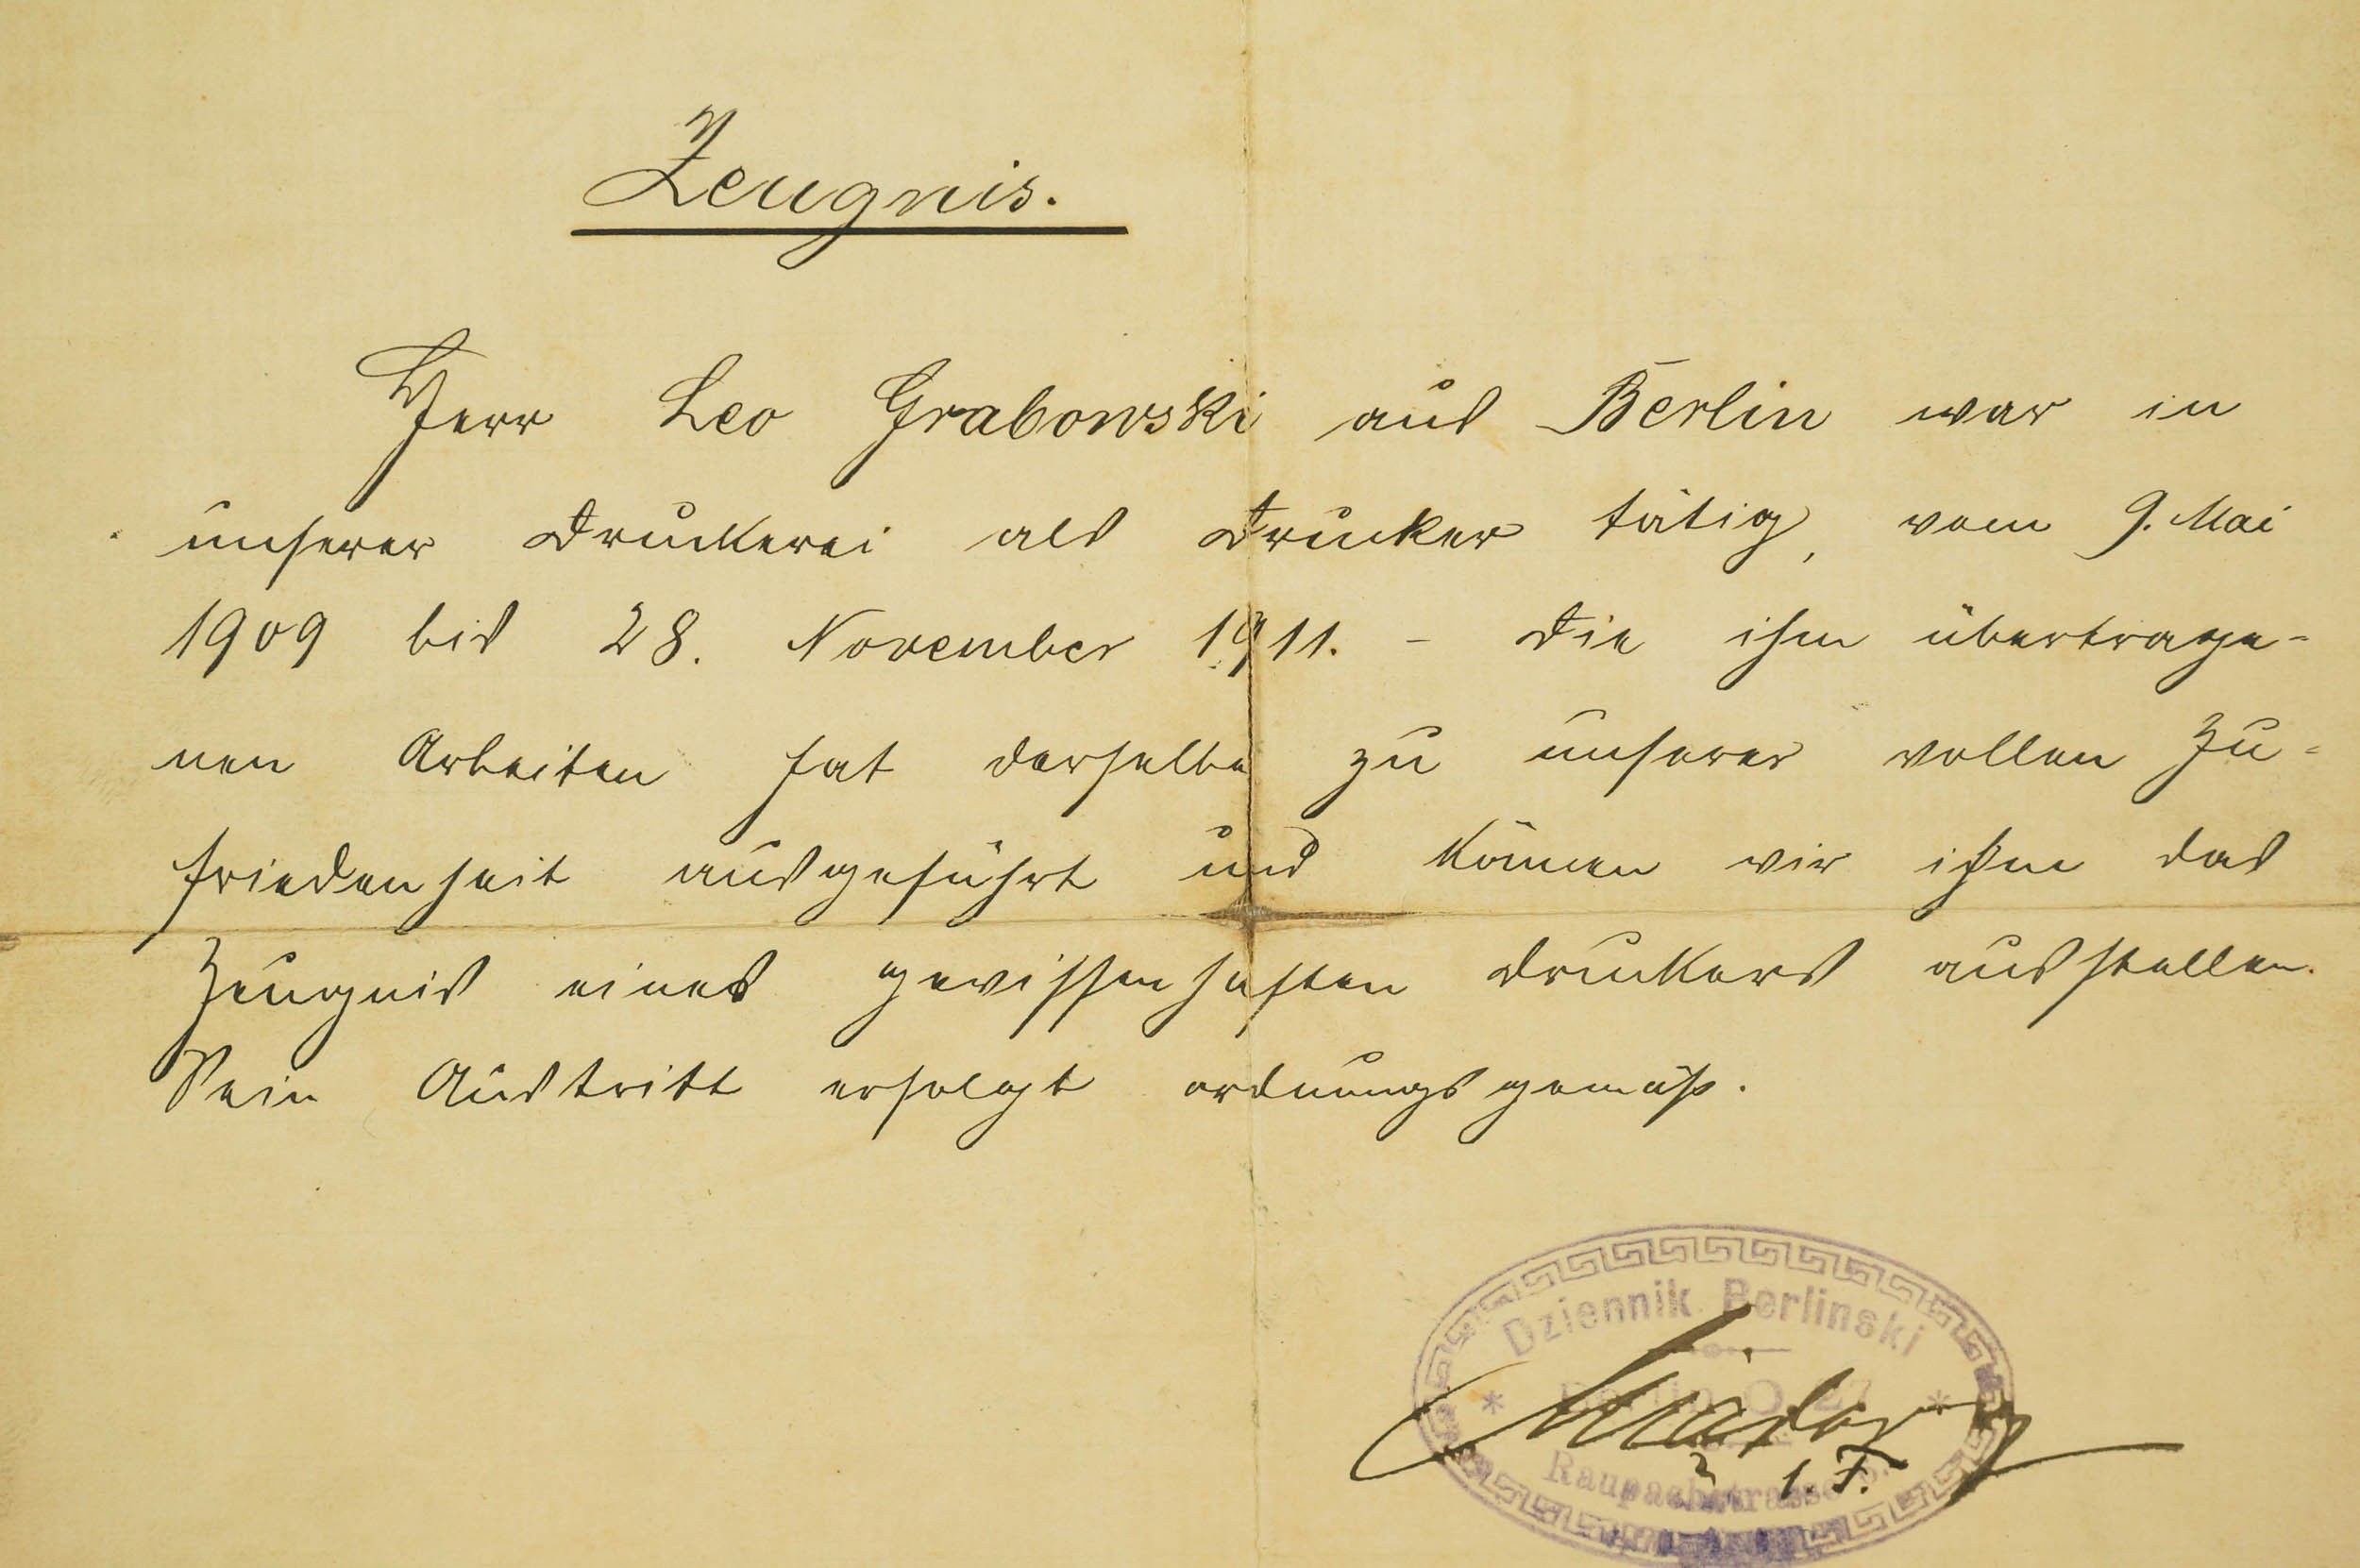 Zeugnis.
Herr Leo Grabowski aus Berlin war in
unserer Druckerei als Drucker tätig, vom 9. Mai
1909 bis 28. November 1911. – Die ihm übertrage-
nen Arbeiten hat derselbe zu unserer vollen Zu-
friedenheit ausgeführt und können wir ihm das
Zeugnis eines gewissenhaften Druckers ausstellen.
Sein Austritt erfolgt ordnungsgemäß.
Dziennik Berlinski
Berlin O. 27
Raupachstrasse